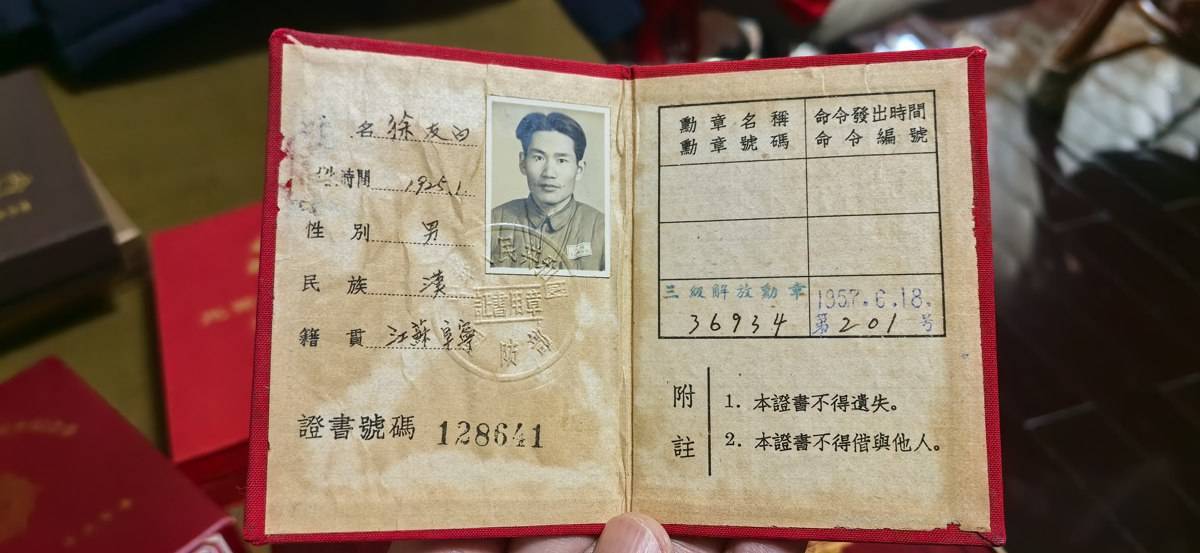 名 徐友白
時間 1925.1.
性別 男
民族 漢
籍貫 江蘇阜寧
證書號碼 128641
證書用章
勳章名稱
勳章號碼
命令發出時間
命令編號
三級解放勳章
36934
1957.6.18.
第201号
附註
1. 本證書不得遺失。
2. 本證書不得借與他人。